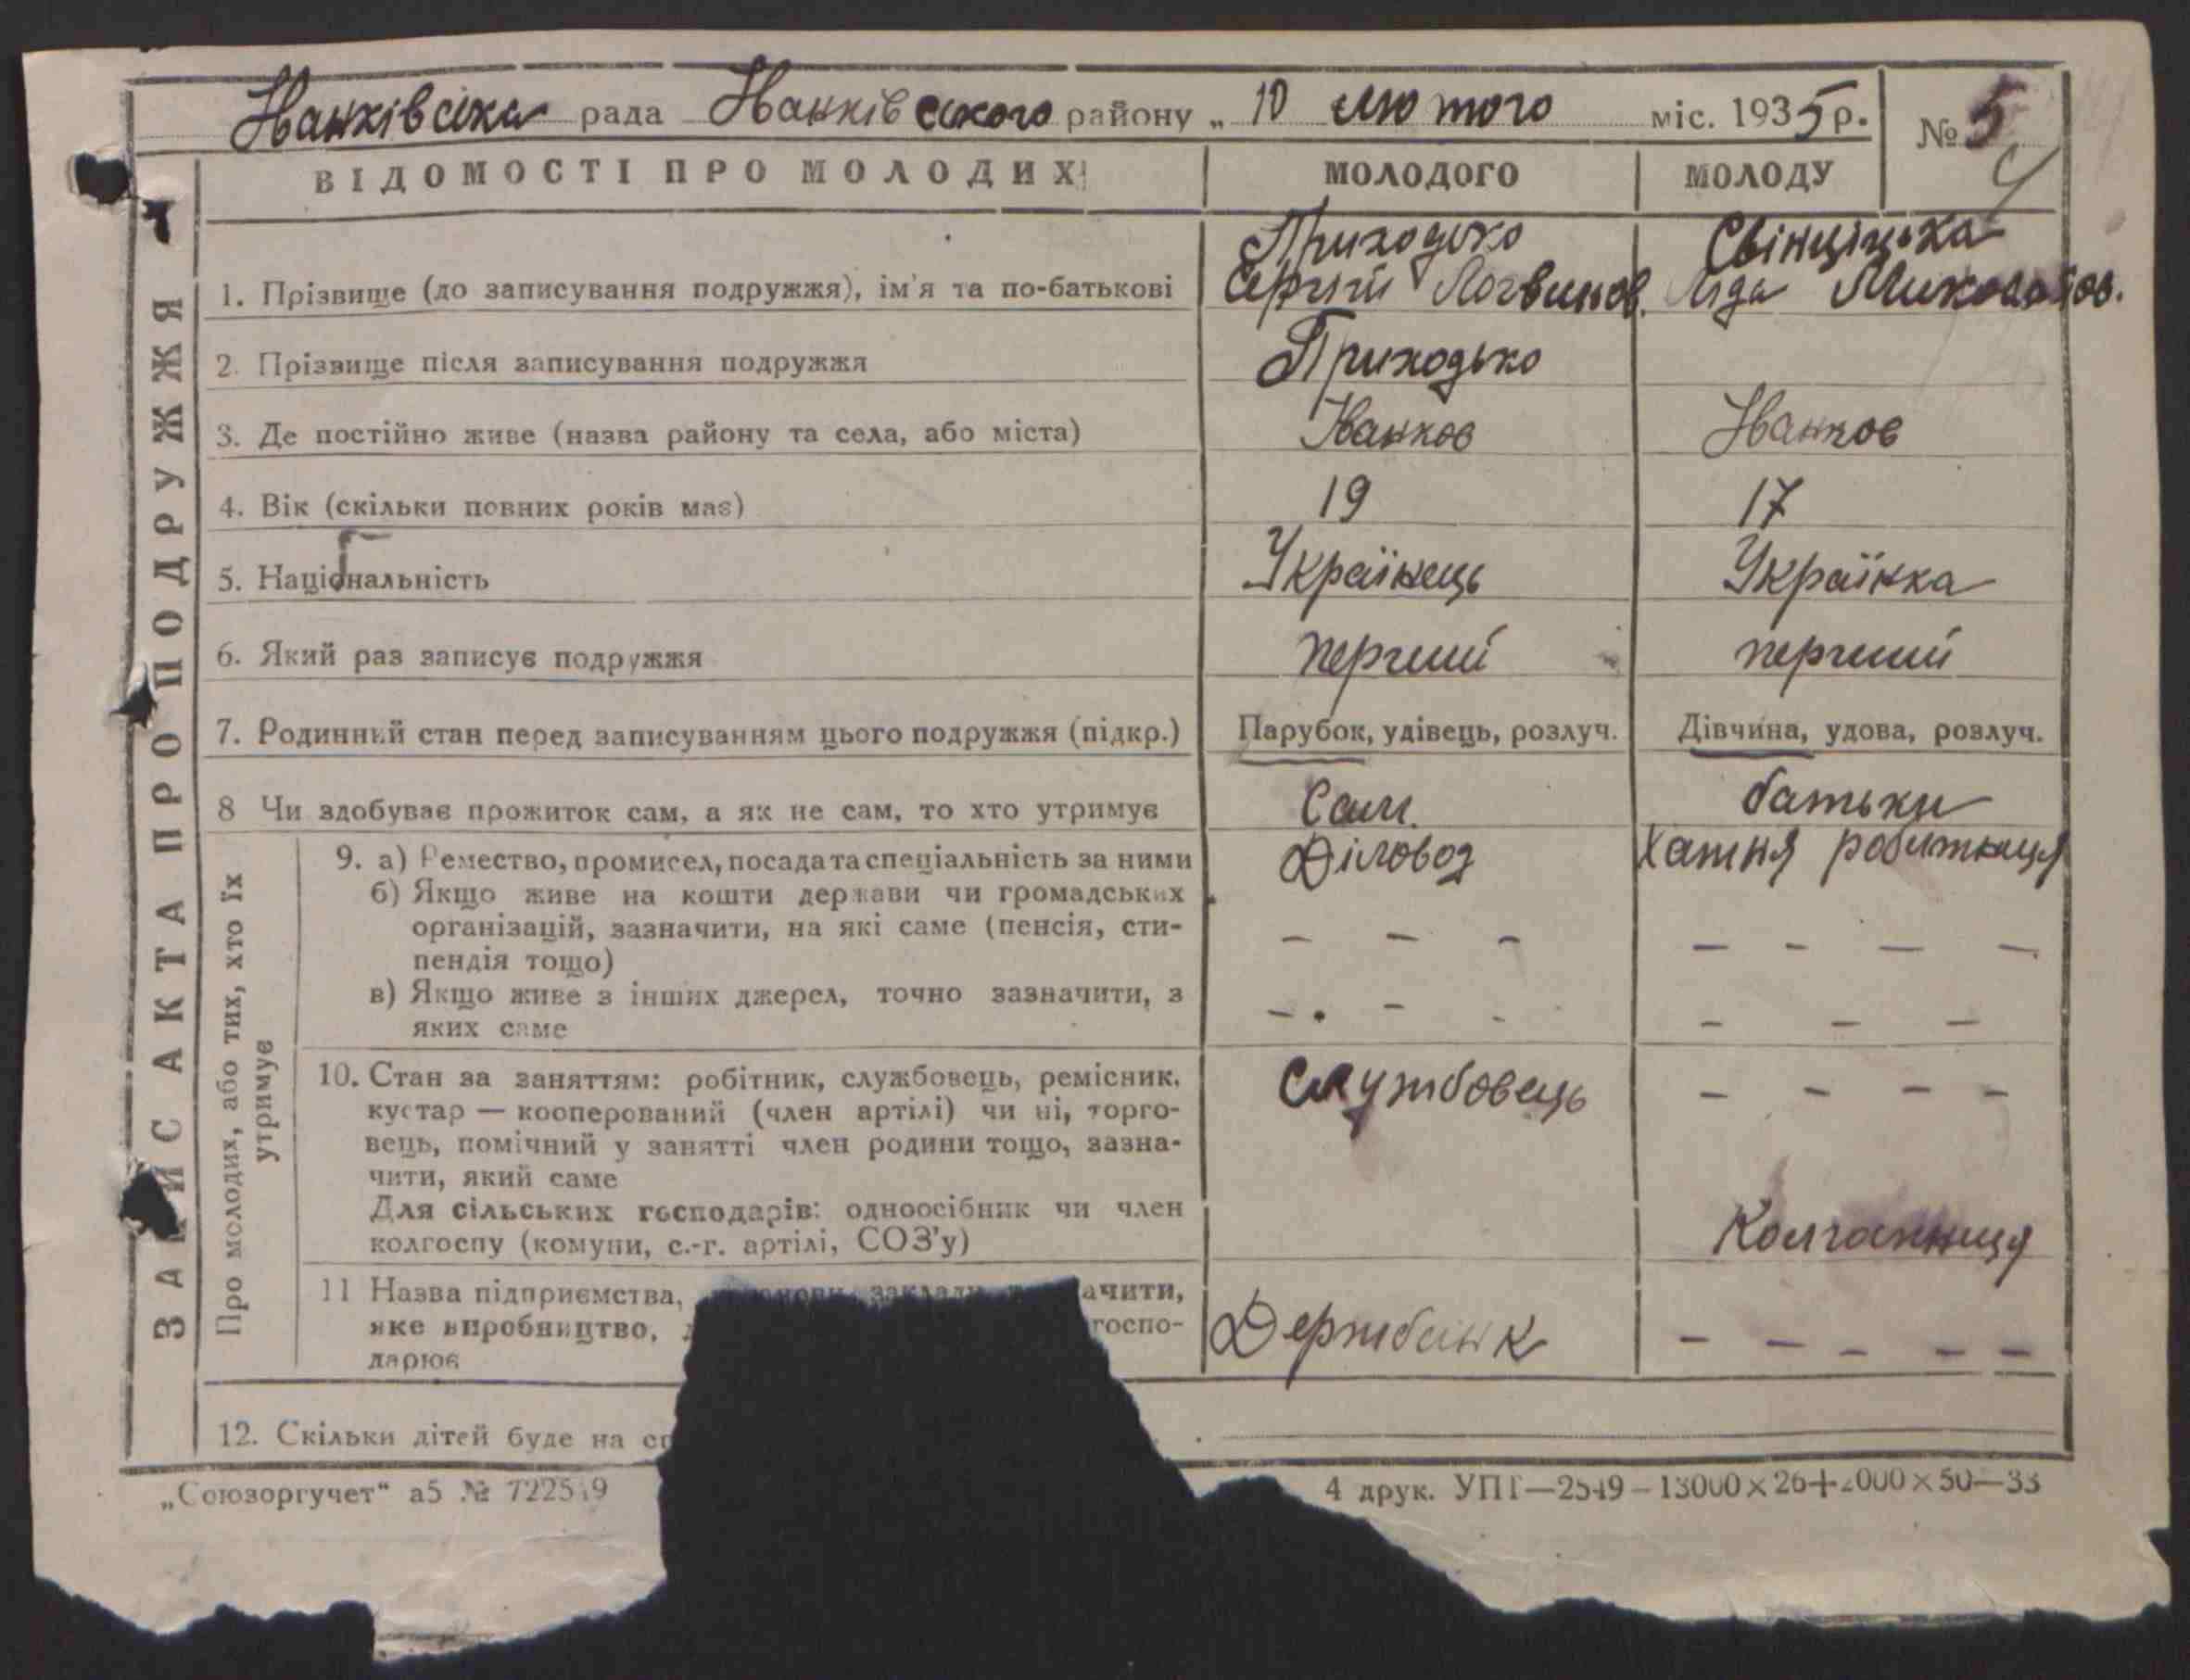 Іванківська рада Іванківського району „ 10 лютого міс. 1935 р. № 5
4
ВІДОМОСТІ ПРО МОЛОДИХ МОЛОДОГО МОЛОДУ
ЗАПИС АКТА ПРО ПОДРУЖЖЯ
Приходько Свінціцька
1. Прізвище (до записування подружжя), ім'я та по-батькові Сергій Логвинов. Ліда Миколайов.
2. Прізвище після записування подружжя Приходько
3. Де постійно живе (назва району та села, або міста) Іванков Іванков
4. Вік (скільки повних років має) 19 17
5. Національність Українець Українка
6. Який раз записує подружжя перший перший
7. Родинний стан перед записуванням цього подружжя (підкр.) Парубок, удівець, розлуч. Дівчина, удова, розлуч.
8 Чи здобуває прожиток сам, а як не сам, то хто утримує Сам. батьки
Про молодих, або тих, хто їх
утримує
9. а) Ремество, промисел, посада та спеціальність за ними Діловод хатня робітниця
б) Якщо живе на кошти держави чи громадських
організацій, зазначити, на які саме (пенсія, сти- – – – – – – –
пендія тощо)
в) Якщо живе з інших джерел, точно зазначити, з – – – – – –
яких саме
10. Стан за заняттям: робітник, службовець, ремісник, Службовець – – – –
кустар — кооперований (член артілі) чи ні, торго-
вець, помічний у занятті член родини тощо, зазна-
чити, який саме
Для сільських господарів: одноосібник чи член
колгоспу (комуни, с.-г. артілі, СОЗ'у) Колгоспниця
11 Назва підприємства, заклади ачити,
яке виробництво, госпо- Держбанк – – – – –
дарює
12. Скільки дітей буде на
„Союзоргучет“ а5 № 4 друк. УПП—2549—13000×26+2000×50—33